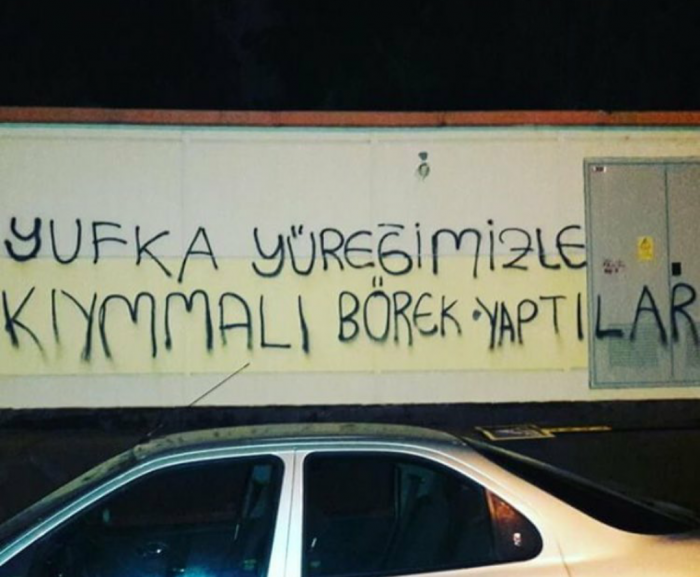 YUFKA YÜREĞİMİZLE
KIYMMALI BÖREK YAPTILAR